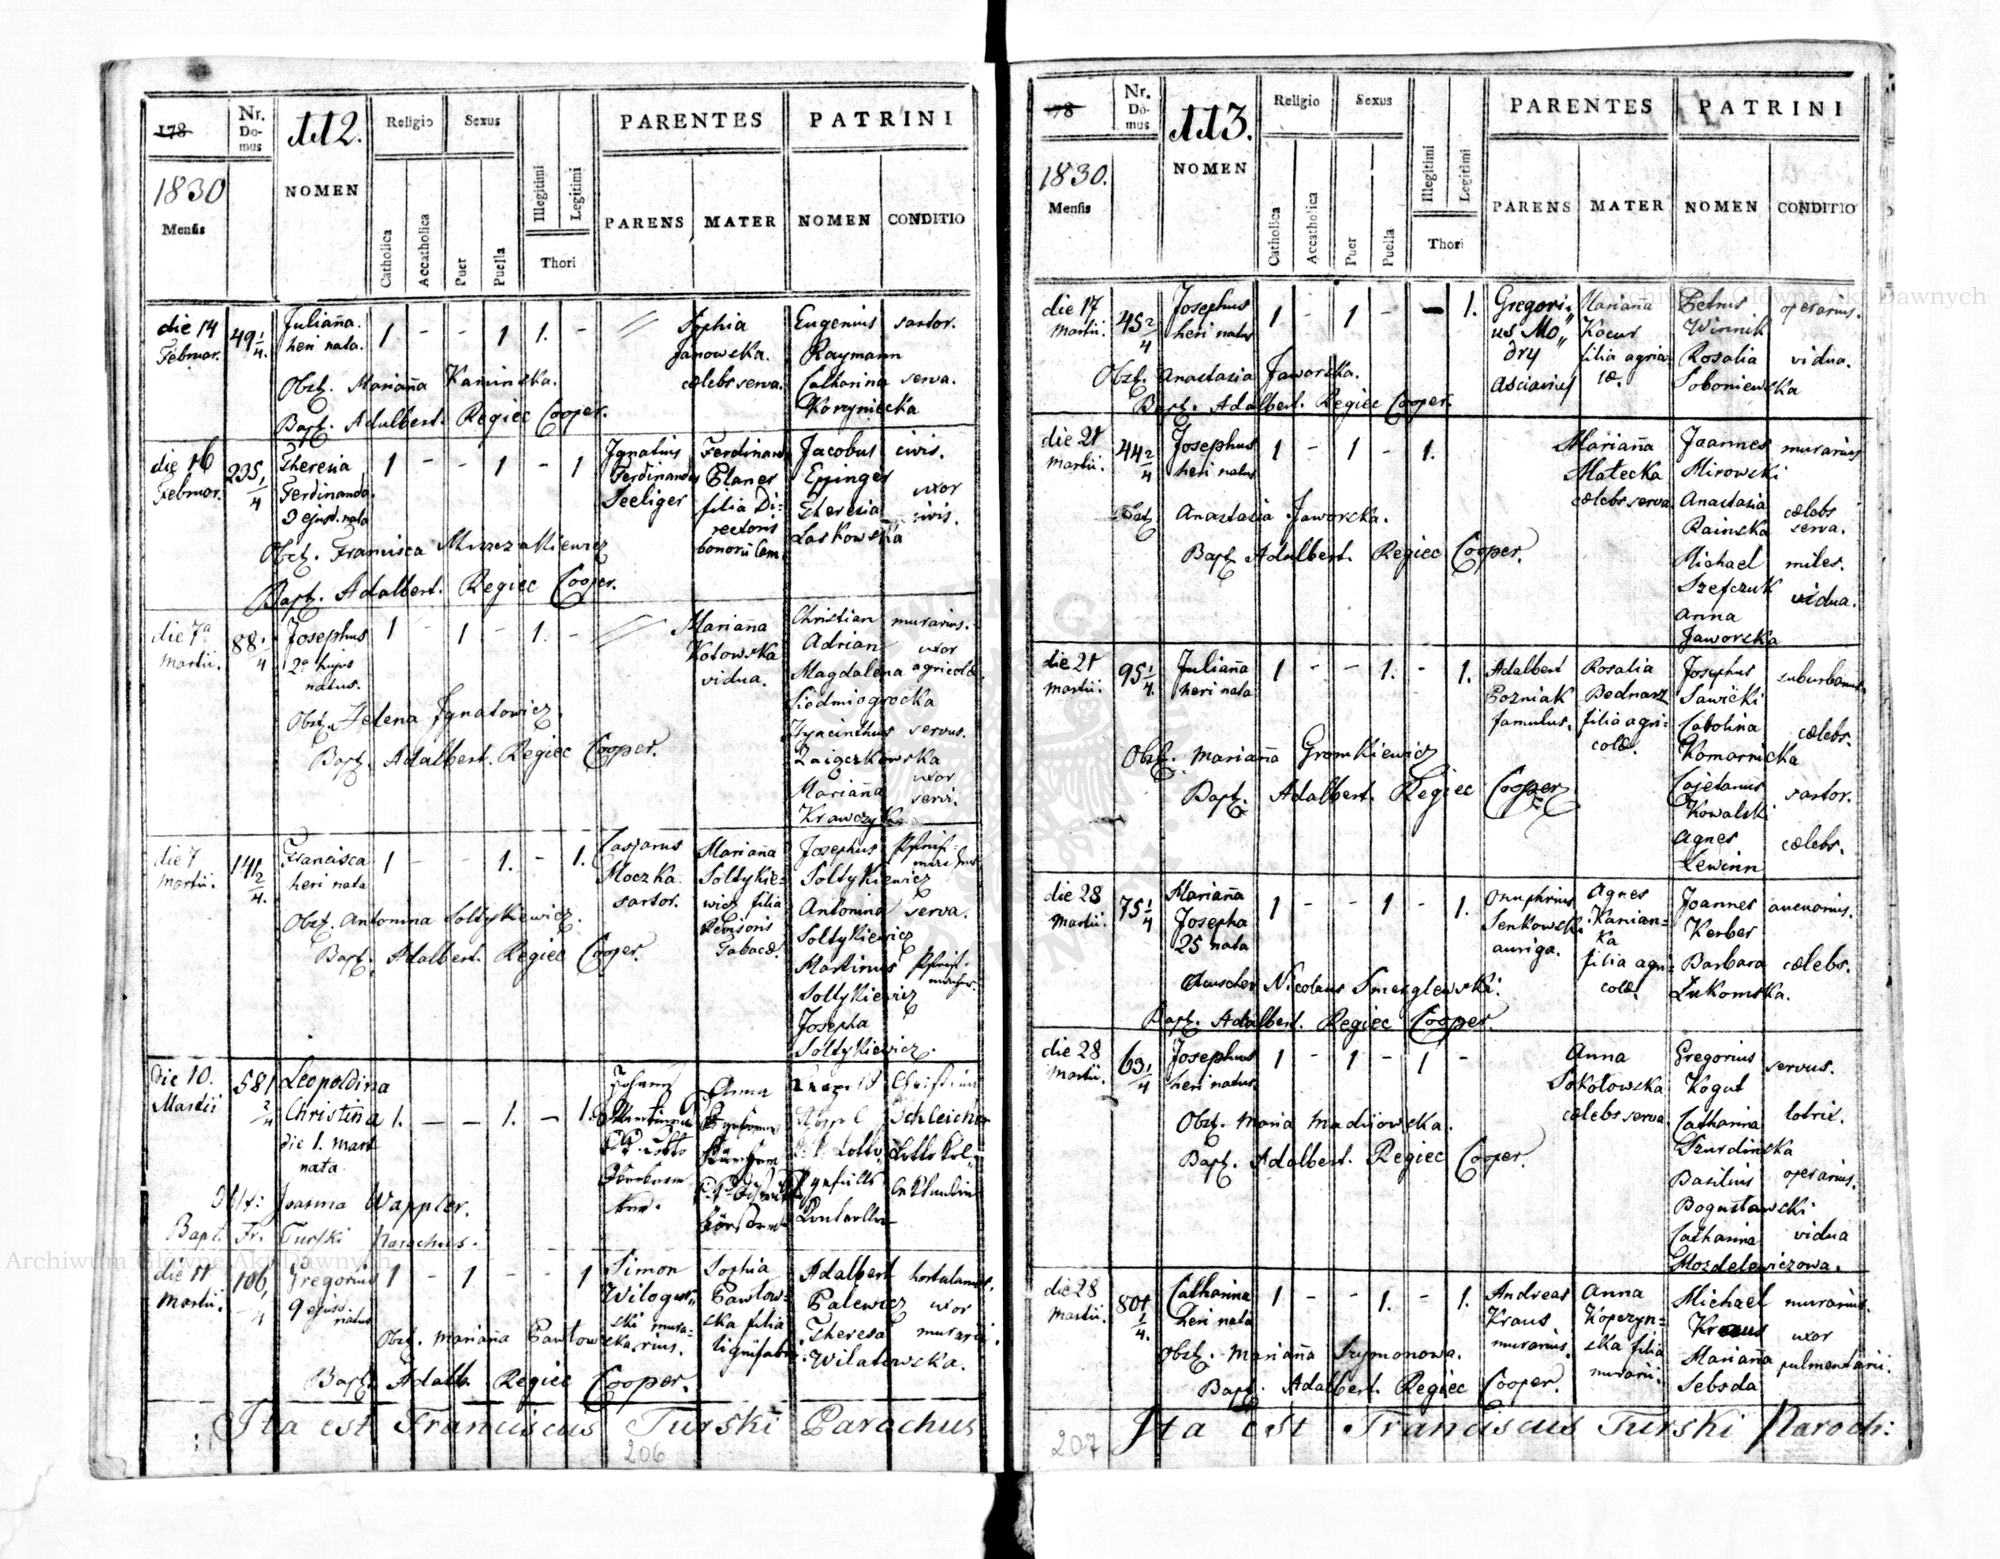 178
Nr. Domus
112.
Religio
Sexus
PARENTES
PATRINI
1830
Mensis
NOMEN
Catholica
Accatholica
Puer
Puella
Illegitimi
Legitimi
Thori
PARENS
MATER
NOMEN
CONDITIO
die 14 Februar.
49 1/4.
Julianna heri nata.
1 - - 1 1. -
Sophia Janowska. cælebs serva.
Eugenius Raymann
sartor.
Catharina Korzyniecka
serva.
Obst. Marianna Kaminska.
Bapt. Adalbert. Regiec Cooper.
die 16 Februar.
235 1/4
Theresia Ferdinanda 9 ejusd. nata
1 - - 1 - 1
Ignatius Ferdinandus Seeliger
Ferdinand Planer filia Directoris bonorū Cam.
Jacobus Eppinger
civis.
Theresia Laskowska
uxor civis.
Obst. Francisca
Bapt. Adalbert. Regiec Cooper.
die 7a Martii.
88 1/4
Josephus 2a hujus natus.
1 - 1 - 1. -
Marianna Kotowska vidua.
Christian Adrian
murarius.
Magdalena Siedmiogrocka
uxor agricolæ.
Hyacinthus
servus.
Marianna Krawczyk
uxor servi.
Obst. Helena Ignatowicz.
Bapt. Adalbert. Regiec Cooper.
die 7 Martii.
141 2/4.
Francisca heri nata
1 - - 1. - 1.
Casparus Moczka sartor.
Marianna Soltykiewicz filia Revisoris Tabacæ.
Josephus Soltykiewicz
Antonina Soltykiewicz
serva.
Martinus Soltykiewicz
Josepha Soltykiewicz.
Obst. Antonina Soltykiewicz.
Bapt. Adalbert. Regiec Cooper.
die 10. Martii
581 2/4
Leopoldina Christina die 1. Mart nata
1. - - 1. - 1.
Johann
Anna
Obst: Joanna Wappler.
Bapt. Fr. Turski Parochus.
die 11 Martii.
106 1/4
Gregorius 9 ejusd. natus
1 - 1 - - 1
Simon Wilogurski murarius.
Sophia Pawlowska filia lignifabri.
Adalbert Palewicz
hortulanus.
Theresa Wilatowska.
uxor murarii.
Obst. Marianna Pawlowska
Bapt. Adalb. Regiec Cooper.
Ita est Franciscus Turski Parochus
206
78
Nr. Domus
113.
Religio
Sexus
PARENTES
PATRINI
1830.
Mensis
NOMEN
Catholica
Accatholica
Puer
Puella
Illegitimi
Legitimi
Thori
PARENS
MATER
NOMEN
CONDITIO
die 17 Martii.
45 2/4
Josephus heri natus
1 - 1 - - 1.
Gregorius Modry asciarius
Marianna Kocur filia agricolæ.
Petrus Winnik
operarius.
Rosalia Soboniewska
vidua.
Obst. Anastasia Jaworska.
Bapt. Adalbert. Regiec Cooper.
die 21 Martii.
44 2/4
Josephus heri natus
1 - 1 - 1.
Marianna Małecka cælebs serva.
Joannes Mirowski
murarius
Anastasia Rainska
cælebs serva.
Michael Szefczuk
miles.
Anna Jaworska
vidua.
Obst. Anastasia Jaworska.
Bapt. Adalbert. Regiec Cooper.
die 21 Martii.
95 1/4.
Julianna heri nata
1 - - 1. - 1.
Adalbert Pozniak famulus.
Rosalia Bednarz filia agricolæ.
Josephus Sawicki
suburbanus.
Carolina Komarnicka
cælebs.
Cajetanus Kowalski
sartor.
Agnes Lewinn
cælebs.
Obst. Marianna Gromkiewicz
Bapt. Adalbert. Regiec Cooper
die 28 Martii.
75 1/4
Marianna Josepha 25 nata
1 - - 1 - 1.
Onuphrius Senkowski auriga.
Agnes Kanianka filia agricolæ.
Joannes Kerber
Barbara Łukomska.
cælebs.
Nicolaus
Bapt. Adalbert. Regiec Cooper.
die 28 Martii.
63 1/4
Josephus heri natus.
1 - 1 - 1 -
Anna Sokołowska cælebs serva.
Gregorius Kogut
servus.
Catharina Szurdinska
lotrix.
Basilius Bogusławski
operarius.
Catharina Mozdelewiczowa.
vidua
Obst. Maria Madijowska.
Bapt. Adalbert. Regiec Cooper.
die 28 Martii.
801 1/4.
Catharina heri nata
1 - - 1. - 1.
Andreas Kraus. murarius.
Anna Kopczynska filia murarii.
Michael Kraus
murarius.
Marianna Sebsda
uxor pulmentarii.
Obst. Marianna Szymonowa.
Bapt. Adalbert. Regiec Cooper.
Ita est Franciscus Turski Paroch:
207
Archiwum Główne Akt Dawnych
Archiwum Główne Akt Dawnych